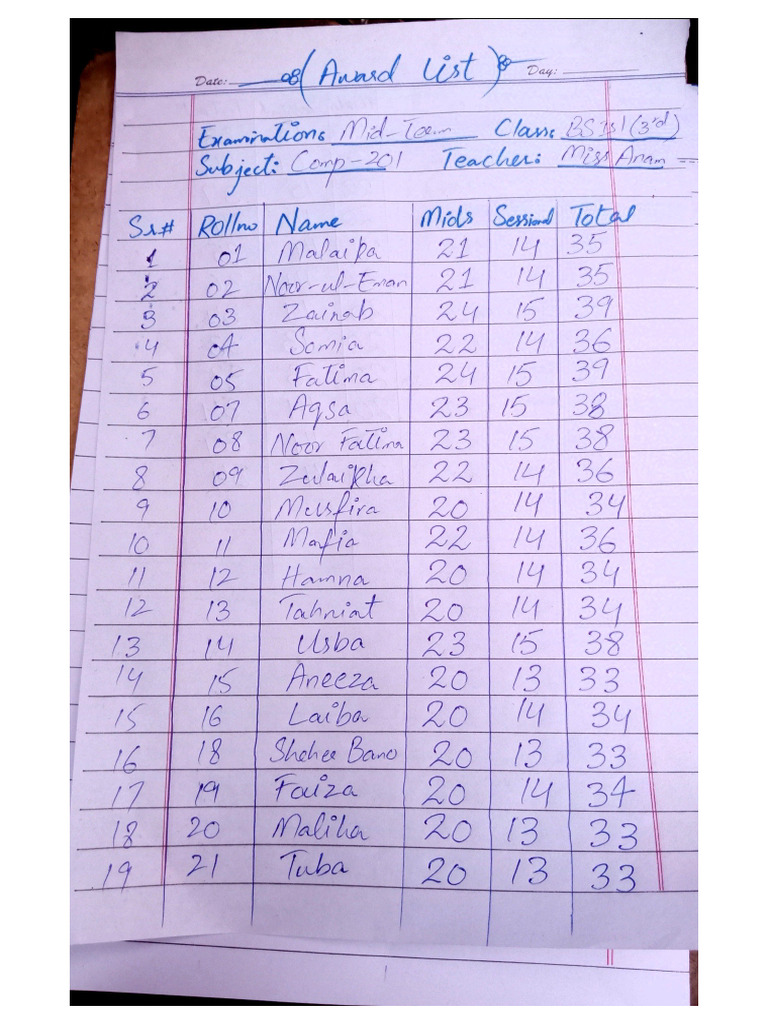 Date: (Award List) Day:
Examination: Mid-Term Class: BS Isl (3rd)
Subject: Comp-201 Teacher: Miss Anam
Sr# Rollno Name Mids Sessional Total
1 01 Malaika 21 14 35
2 02 Noor-ul-Eman 21 14 35
3 03 Zainab 24 15 39
4 04 Somia 22 14 36
5 05 Fatima 24 15 39
6 07 Aqsa 23 15 38
7 08 Noor Fatima 23 15 38
8 09 Zulaikha 22 14 36
9 10 Musfira 20 14 34
10 11 Mafia 22 14 36
11 12 Hamna 20 14 34
12 13 Tahniat 20 14 34
13 14 Usba 23 15 38
14 15 Aneeza 20 13 33
15 16 Laiba 20 14 34
16 18 Sheher Bano 20 13 33
17 19 Faiza 20 14 34
18 20 Maliha 20 13 33
19 21 Tuba 20 13 33